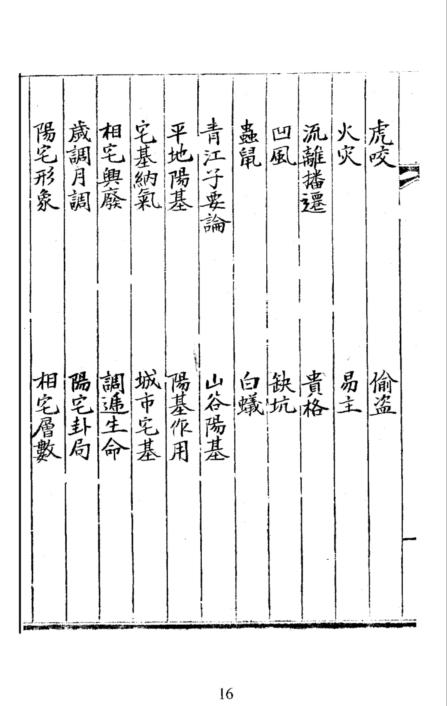 虎咬 偷盗
火灾 易主
流離播遷 貴格
凹風 缺坑
蟲鼠 白蟻
青江子要論 山谷陽基
平地陽基 陽基作用
宅基納氣 城市宅基
相宅興廢 調遞生命
歲調月調 陽宅卦局
陽宅形象 相宅層數
16